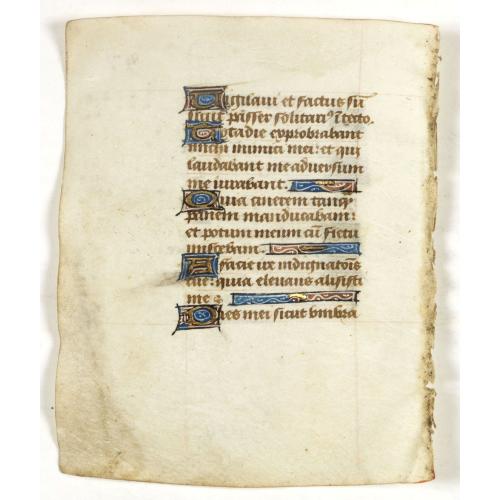 Vigilaui et factus sū
sicut passer solitariꝰ ī tecto.
Tota die exprobrabant
michi inimici mei: et qui
laudabant me aduersum
me iurabant.
Quia cinerem tanqͣ
panem manducabam:
et potum meum cū fletu
miscebam.
A facie ire indignatōis
tue: quia eleuans alisisti
me.
Dies mei sicut vmbra